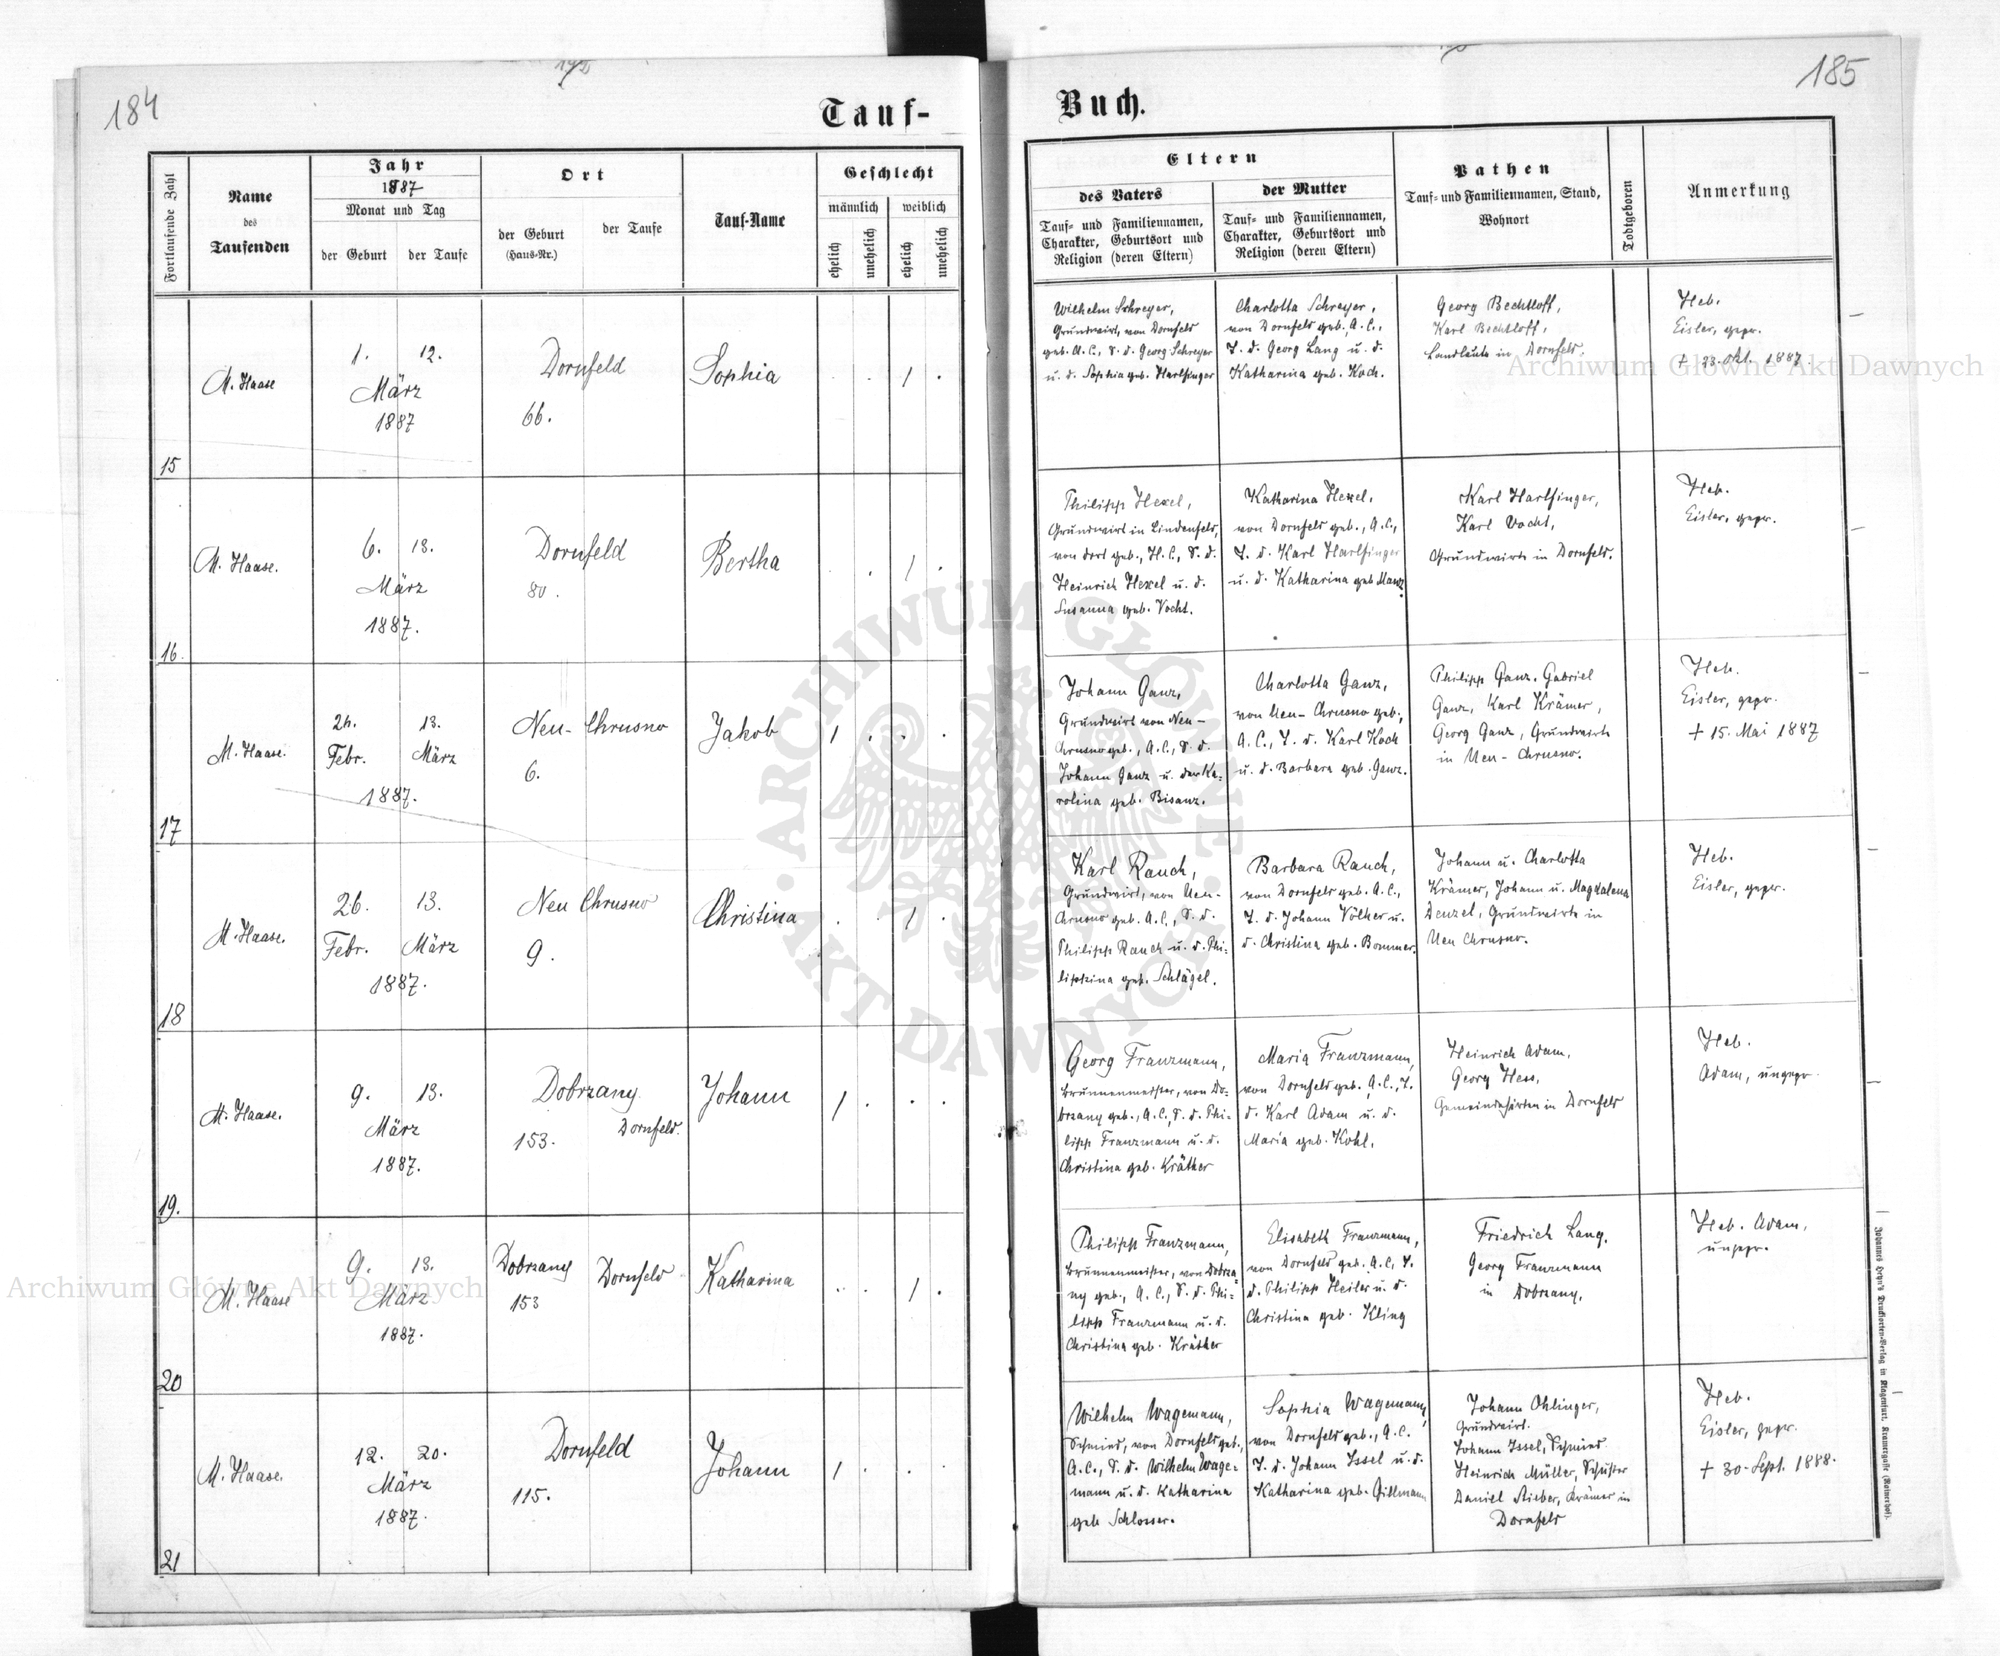 184
185
Tauf-
Buch.
Fortlaufende Zahl
Name
des
Taufenden
Jahr
1887
Monat und Tag
der Geburt
der Taufe
Ort
der Geburt
(Haus-Nr.)
der Taufe
Tauf-Name
Geschlecht
männlich
weiblich
ehelich
unehelich
ehelich
unehelich
Eltern
des Vaters
Tauf- und Familiennamen,
Charakter, Geburtsort und
Religion (deren Eltern)
der Mutter
Tauf- und Familiennamen,
Charakter, Geburtsort und
Religion (deren Eltern)
Pathen
Tauf- und Familiennamen, Stand,
Wohnort
Todtgeboren
Anmerkung
15
M. Haase
1. 12.
März
1887
Dornfeld
66.
Sophia
1
Wilhelm Schreyer,
Grundwirt, von Dornfeld
geb. A. C., S. d. Georg Schreyer
u. d. Sophia geb. Harlfinger
Charlotta Schreyer,
von Dornfeld geb. A. C.,
T. d. Georg Lang u. d.
Katharina geb. Koch.
Georg Bechtloff,
Karl Bechtloff,
Landleute in Dornfeld.
Heb.
Eisler, gepr.
+ 23. Okt. 1887
16.
M. Haase.
6. 13.
März
1887.
Dornfeld
80.
Bertha
1
Philipp Hexel,
Grundwirt in Lindenfeld,
von dort geb., H. C., S. d.
Heinrich Hexel u. d.
Susanna geb. Vocht.
Katharina Hexel,
von Dornfeld geb., A. C.,
T. d. Karl Harlfinger
u. d. Katharina geb. Manz.
Karl Harlfinger,
Karl Vocht,
Grundwirte in Dornfeld.
Heb.
Eisler, gepr.
17
M. Haase.
13.
Febr. März
1887.
Neu-Chrusno
6.
Jakob
1
Johann Ganz,
Grundwirt von Neu-
Chrusno geb., A. C., S. d.
Johann Ganz u. der Ka-
rolina geb. Bisanz.
Charlotta Ganz,
von Neu-Chrusno geb.,
A. C., T. d. Karl Koch
u. d. Barbara geb. Ganz.
Philipp Ganz. Gabriel
Ganz, Karl Krämer,
Georg Ganz, Grundwirte
in Neu-Chrusno.
Heb.
Eisler, gepr.
+ 15. Mai 1887
18
M. Haase.
26. 13.
Febr. März
1887.
Neu Chrusno
9.
Christina
1
Karl Rauch,
Grundwirt, von Neu-
Chrusno geb. A. C., S. d.
Philipp Rauch u. d. Phi-
lippina geb. Schlägel.
Barbara Rauch,
von Dornfeld geb. A. C.,
T. d. Johann Völker u.
d. Christina geb. Bommer.
Johann u. Charlotta
Krämer, Johann u. Magdalena
Denzel, Grundwirte in
Neu Chrusno.
Heb.
Eisler, gepr.
19.
M. Haase.
9. 13.
März
1887.
Dobrzany
153.
Dornfeld.
Johann
1
Georg Franzmann,
Brunnenmeister, von Do-
brzany geb., A. C., S. d. Phi-
lipp Franzmann u. d.
Christina geb. Kräther
Maria Franzmann,
von Dornfeld geb. A. C., T.
d. Karl Adam u. d.
Maria geb. Kohl.
Heinrich Adam,
Georg Hess,
Gemeindehirten in Dornfeld
Heb.
Adam, ungepr.
20
M. Haase
9. 13.
März
1887.
Dobrzany
153
Dornfeld
Katharina
1
Philipp Franzmann,
Brunnenmeister, von Dobrza-
ny geb., A. C., S. d. Phi-
lipp Franzmann u. d.
Christina geb. Kräther
Elisabeth Franzmann,
von Dornfeld geb. A. C., T.
d. Philipp Heiler u. d.
Christina geb. Kling
Friedrich Lang.
Georg Franzmann
in Dobrzany.
Heb. Adam,
ungepr.
21
M. Haase.
12. 20.
März
1887.
Dornfeld
115.
Johann
1
Wilhelm Wagemann,
Schmied, von Dornfeld geb.,
A. C., S. d. Wilhelm Wage-
mann u. d. Katharina
geb Schlosser.
Sophia Wagemann,
von Dornfeld geb., A. C.
T. d. Johann Issel u. d.
Katharina geb. Gillmann
Johann Ohlinger,
Grundwirt.
Johann Issel, Schmied
Heinrich Müller, Schuster
Daniel Stieber, Krämer in
Dornfeld
Heb.
Eisler, gepr.
+ 30. Sept. 1888.
Johannes Heyn's Drucksorten-Verlag in Klagenfurt, Kramergasse (Rainerhof).
Archiwum Główne Akt Dawnych
Archiwum Główne Akt Dawnych
ARCHIWUM GŁÓWNE · AKT DAWNYCH ·